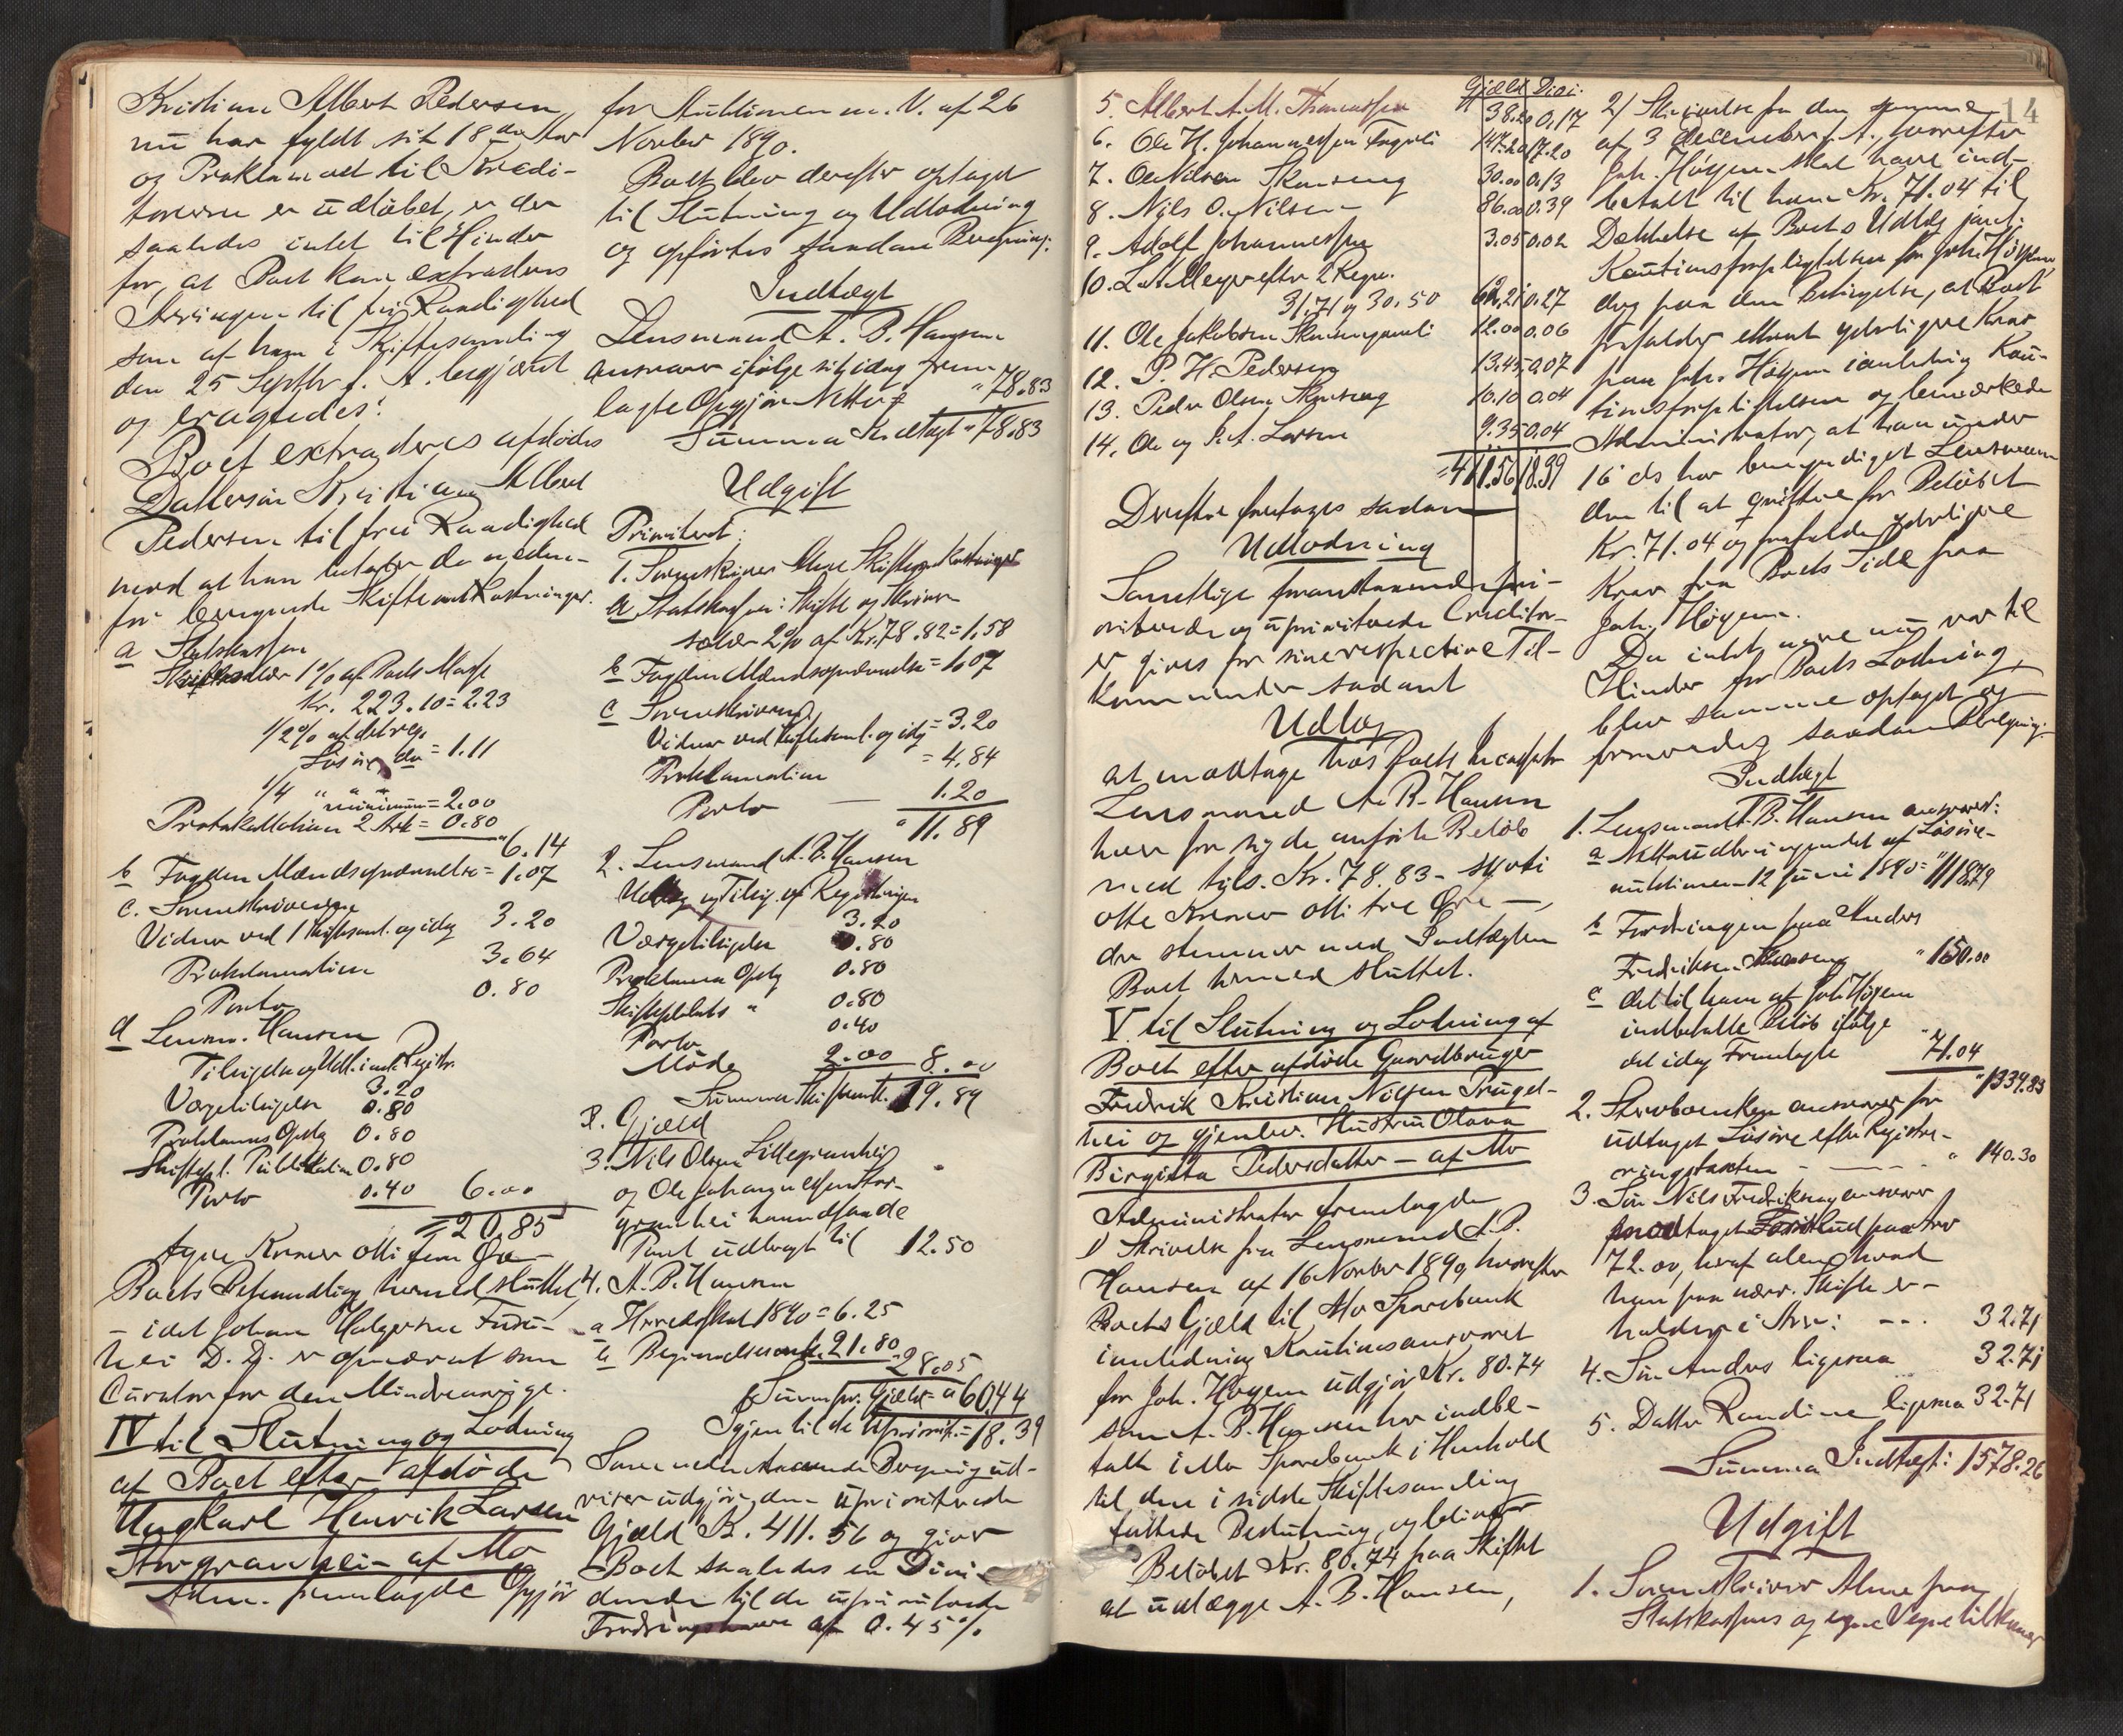 Kristian Albert Pedersen
nu har fyldt sit 18de Aar
og Proklamaet til Kredi-
torerne er udløbet, er der
saaledes intet til Hinder
for, at Boet kan extraderes
Arvingen til fri Raadighed
som af ham i Skiftesamling
den 25 Septbr f. A. begjæret
og eragtedes:
Boet extraderes afdødes
Dattersøn Kristian Albert
Pedersen til fri Raadighed
mod at han betaler de neden-
for beregnede Skifteomkostninger.
a Statskassen
Skiftesalær 1% af Boets Masse
Kr. 223.10 = 2.23
1/2% af det reg.
Løsøre do = 1.11
1/4 " " "
minimum = 2.00
Protokollation 2 Ark = 0.80
" 6.14
b Fogden Mændsopnævnelse = 1.07
c. Sorenskriveren
Vidner ved 1 Skiftesaml. og idag 3.20
Proklamation 3.64
Porto 0.80
d Lensm. Hansen
Tilsigelse og Udl. i anl. Registr.
3.20
Værgetilsigelse 0.80
Proklamas Opslg 0.80
Skiftepl. Publikation 0.80
Porto 0.40 6.00
= 20.85
tyve Kroner otti fem Øre
Boets Behandling hermed sluttet
- idet Johan Holgersen Furu-
hei D. D. er opnævnt som
Curator for den Mindreaarige.
IV til Slutning og Lodning
af Boet efter afdøde
Ungkarl Henrik Larsen
Storgranhei - af Mo
Adm. fremlagde Opgjør
for Auktionen m. V. af 26
Novbr 1890.
Boet blev derefter optaget
til Slutning og Udlodning
og opførtes saadan Beregning:
Indtægt
Lensmand A. B. Hansen
ansvarer ifølge sit idag frem-
lagte Opgjør Netto " 78.83
Summa Indtægt " 78.83
Udgift
Prioriteret:
1. Sorenskriver Alme Skifteomkostninger
a Statskassen: Skifte og Skriver
salær 2% af Kr. 78.82 = 1.58
b Fogden Mændsopnævnelse = 1.07
c Sorenskriveren
Vidner ved Skiftesaml. og idg = 3.20
Proklamation = 4.84
Porto — 1.20
" 11.89
2. Lensmand A. B. Hansen
Udlæg og Tilsig. af Registringen
3.20
Værgetilsigelse 0.80
Proklama Opslg 0.80
Skifteplakats " 0.80
Porto 0.40
Møde 2.00 8.00
Summa Skifteomk. 19.89
B. Gjæld
3. Nils Olsen Lillegranhei
og Ole Johannessen Stor-
granhei haandfaaede
Pant udbragt til 12.50
4. A. B. Hansen
a Herredsskat 1890 = 6.25
b Begravelsesomk. 21.80
28.05
Summa pr. Gjæld = " 60.44
Igjen til de Upriorit. = 18.39
Som nedenstaaende Beregning ud-
viser udgjør den uprioriterede
Gjæld Kr. 411.56 og giver
Boet saaledes en Divi-
dende til de uprioriterede
Fordringshavere af 0.45%
14
Gjæld Divi.
5. Albert A. M. Thomassen 38.20 0.17
6. Ole H. Johannessen 147.20 17.20
7. Ole Nilsen Skonseng 30.00 0.13
8. Nils O. Nilsen 86.00 0.39
9. Adolf Johannessen 3.05 0.02
10. L. A. Meyer efter 2 Regn.
31.71 og 30.50 62.21 0.27
11. Ole Jakobsen 12.00 0.06
12. P. H. Pedersen 13.45 0.07
13. Peder Olsen Skonseng 10.10 0.04
14. Ole og P. A. Larsen 9.35 0.04
= 411.56 18.39
Derefter foretages saadan
Udlodning
Samtlige foranstaaende pri-
oriterede og uprioriterede Creditor-
er gives for sine respective Til-
kommender sadant
Udlæg
at modtage hos Boets Incassator
Lensmand A. B. Hansen
hver for sig de anførte Beløb
med tils. Kr. 78.83 - sytti
otte Kroner otti tre Øre —,
der stemmer med Indtægten
Boet hermed sluttet.
V. til Slutning og Lodning af
Boet efter afdøde Gaardbruger
Fredrik Kristian Nilsen Trugel-
hei og gjenlev. Hustru Olava
Birgitta Pedersdatter - af Mo
Administrator fremlagde
1/ Skrivelse fra Lensmand A. B.
Hansen af 16 Novber 1890, hvorefter
Boets Gjæld til Mo Sparebank
i anledning Kautionsansvaret
for Joh. Høgem udgjør Kr. 80.74
som A. B. Hansen har indbe-
talt i Mo Sparebank i Henhold
til den i sidste Skiftesamling
fattede Beslutning, og bliver
Beløbet Kr. 80.74 paa Skiftet
at udlægge A. B. Hansen,
2/ Skrivelse fra den samme
af 3 December f. A., hvorefter
Joh. Høgem skal have ind-
betalt til ham Kr. 71.04 til
Dækkelse af Boets Udlæg janf.
Kautionsforpligtelsen for Joh. Høgem,
dog paa den Betingelse, at Boet
frafalder ethvert yderligere Krav
paa Joh. Høgem i anledning Kau-
tionsforpligtelsen og bemærkede
Administrator, at han under
16 ds har bemyndiget Lensman-
den til at qvittere for Beløbet
Kr. 71.04 og frafalde yderligere
Krav fra Boets Side paa
Joh. Høgem.
Da intet mere nu var til
Hinder for Boets Lodning,
blev samme optaget og
forevredes saadan Beregning:
Indtægt
1. Lensmand A. B. Hansen ansvarer:
a Nettoudbringendet af Løsøre-
auktionen 12 Juni 1890 = " 1118.79
b Fordringen paa Anders
Fredriksen " 150.00
c det til ham af Joh. Høgem
indbetalte Beløb ifølge
det idag Fremlagte " 71.04
" 1339.83
2. Stervboenken ansvarer for
udtaget Løsøre efter Registre-
ringstaxten - — - - " 140.30
3. Søn Nils Fredriksen ansvarer
modtaget Forskud paa Arv
72.00, hvoraf alene hvad
han paa nærv. Skifte er-
holder i Arv: - - - 32.71
4. Søn Anders ligesaa 32.71
5. Datter Randine ligesaa 32.71
Summa Indtægt: 1578.26
Udgift
1. Sorenskriver Alme paa
Statskassens og egne Vegne tilkommer